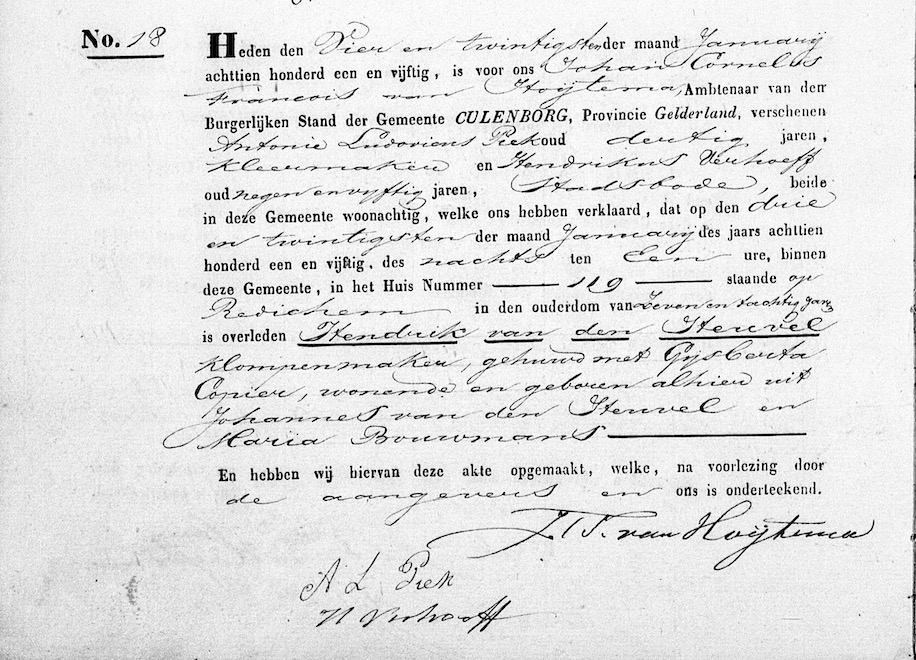 No. 18
Heden den Vier en twintigsten der maand Januarij
achttien honderd een en vijftig, is voor ons Johan Cornelis
Francois van Hoytema, Ambtenaar van den
Burgerlijken Stand der Gemeente CULENBORG, Provincie Gelderland, verschenen
Antonie Ludovicus Piek oud dertig jaren,
Kleermaker en Hendrikus Verhoeff
oud negen en vyftig jaren, Stadsbode, beide
in deze Gemeente woonachtig, welke ons hebben verklaard, dat op den drie
en twintigsten der maand Januarij des jaars achttien
honderd een en vijftig, des nachts ten Een ure, binnen
deze Gemeente, in het Huis Nummer 119 staande op
Redichem in den ouderdom van Zeven en tachtig jaren
is overleden Hendrik van den Heuvel
Klompenmaker, gehuwd met Gysberta
Copier, wonende en geboren alhier uit
Johannes van den Heuvel en
Maria Bouwmans
En hebben wij hiervan deze akte opgemaakt, welke, na voorlezing door
de aangevers en ons is onderteekend.
van Hoijtema
A L Piek
H Verhoeff